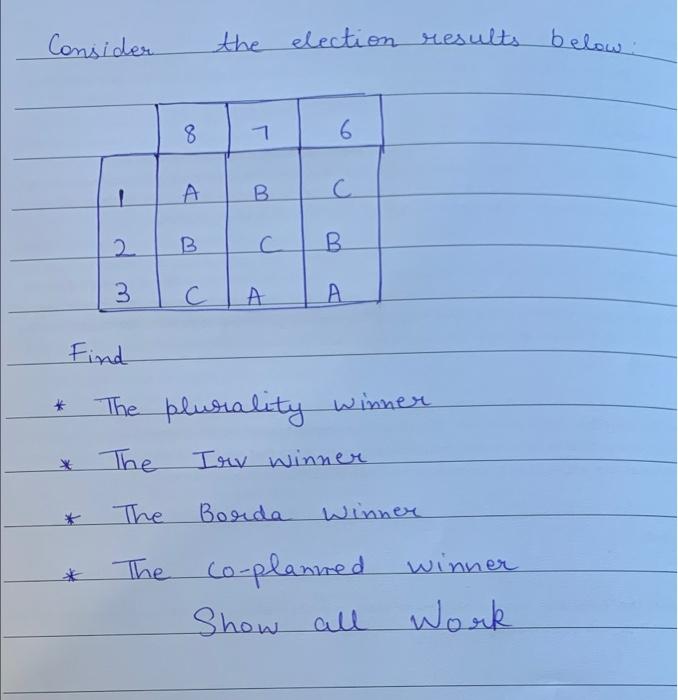 Consider the election results below:
8 7 6
1 A B C
2 B C B
3 C A A
Find
* The plurality winner
* The Irv winner
* The Borda winner
* The co-planned winner
Show all Work